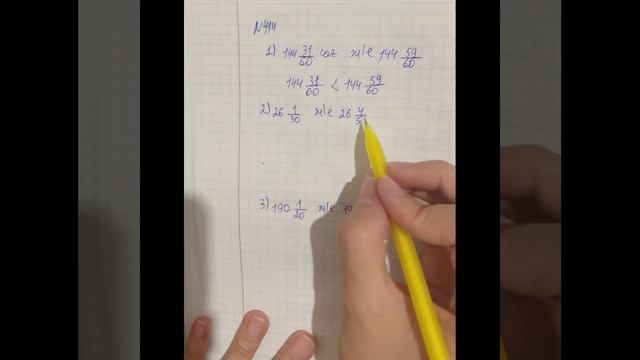 N414
1) 144 31/60 сағ ж/е 144 59/60
144 31/60 < 144 59/60
2) 26 1/30 ж/е 26 4/5
3) 190 1/20 ж/е